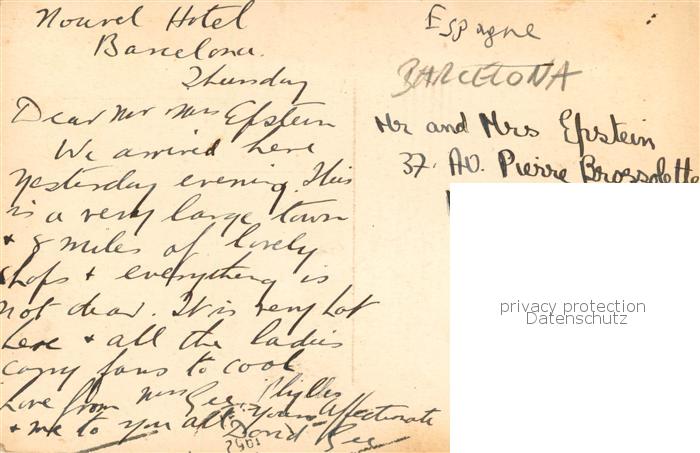 Nouvel Hotel
Barcelona.
Thursday
Dear Mr Mrs Epstein
We arrived here
yesterday evening. This
is a very large town
+ 8 miles of lovely
shops + everything is
not dear. It is very hot
here + all the ladies
carry fans to cool
Love from Mrs Gee, Phyllis
+ me to you all Yours Affectionate
David Gee
Espagne
BARCELONA
Mr and Mrs Epstein
37. AV. Pierre Brossolette
privacy protection
Datenschutz